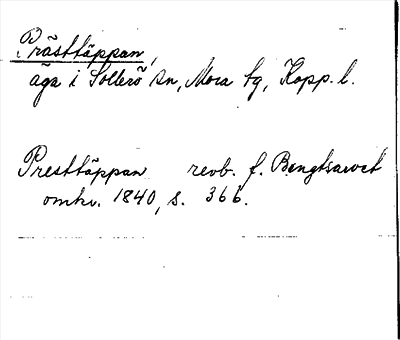 Prästtäppan,
äga i Sollerö sn, Mora tg, Kopp. l.
Presttäppan revb. f. Bengtsarvet
omkr. 1840, s. 366.